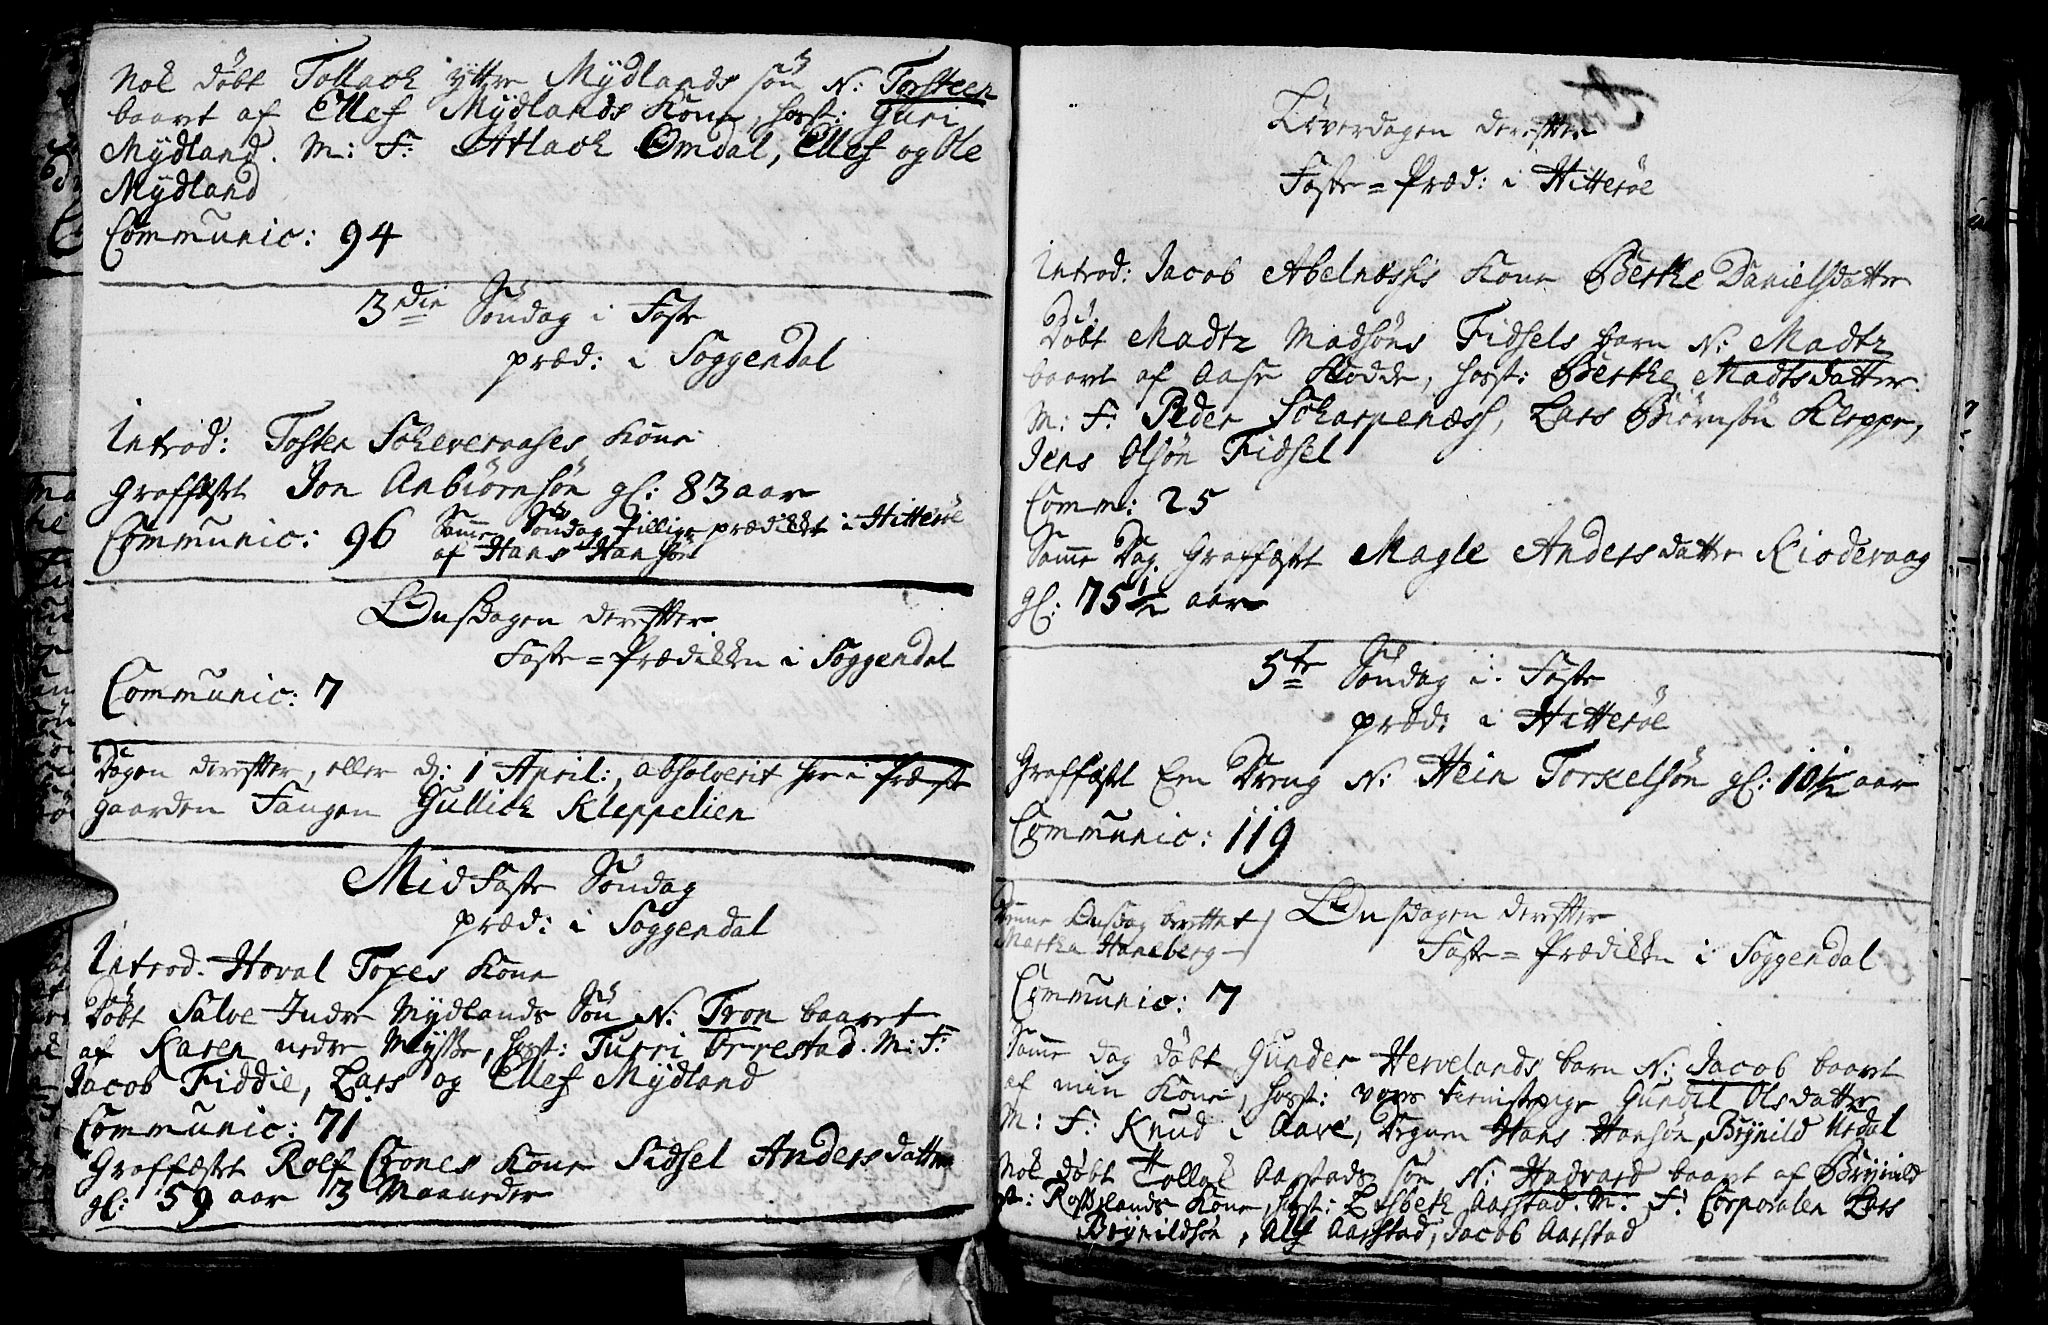 Nok døbt Tollach yttre Mÿdlands søn N: Torsteen
baaret af Ellef Mÿdlands Kone, hosst: Guri
Mÿdland. M: F: Atlach Omdal, Ellef og Ole
Mÿdland
Communic: 94
3die Søndag i Faste
præd: i Soggendal
Introd: Tosten Scheveraases Kone
Graffæstet Jon Anbiørnsøn gl: 83 aar
Communic: 96 Samme Søndag tillige prædikket i Hitterøe
af Hans Hansøn
Onsdagen derefter
Faste=Prædikken i Soggendal
Communic: 7
Dagen derefter, eller d: 1 April:, absolverit her i Præste
gaarden Fangen Gullich Kleppelien
Mid Faste Søndag
præd: i Soggendal
Introd. Hoval Toges Kone
Døbt Salve Indre Mÿdlands Søn N: Tron baaret
af Karen nedre Mÿsse, hosst: Turri Orrestad. M: F:
Jacob Fiddie, Lars og Ellef Mÿdland
Communic: 71
Graffæstet Rolf Crones Kone Sidsel Andersdatter
gl: 59 aar 3 Maaneder
Løverdagen derefter
Faste=Præd: i Hitterøe
Introd: Jacob Abelnæshs Kone Berthe Danielsdatter
Døbt Madtz Madsøns Fidsels barn N: Madtz
baaret af Aase Rodde, hosst: Berthe Madtsdatter
M: F: Peder Scharpenæss, Lars Biørnsøn Kleppe,
Jens Olsøn Fidsel
Comm: 25
Samme Dag Graffæstet Magle Andersdatter Kioderaag
gl: 75 1/2 aar
5te Søndag i Faste
præd: i Hitterøe
Graffæstet Een Dreng N: Hein Torkelsøn gl: 10 1/2 aar
Communic: 119
Denne Onsdag berettet
Martha Haneberg
Onsdagen derefter
Faste=Prædikken i Soggendal
Communic: 7
Samme dag døbt Gunder Hervelands barn N: Jacob baaret
af min Kone, hosst: vores tienistepige Gundil Olsdatter
M: F: Knud i Aave, Degnen Hans Hansøn, Brÿnild Urdal
Nok døbt Tollak Aarstads søn N: Hadvard baaret af Brÿnild
Rosslands Kone, hosst: Lisbeth Aarstad. M. F: Corporalen Lars
Brÿnildsøn, Alf Aarstad, Jacob Aarstad